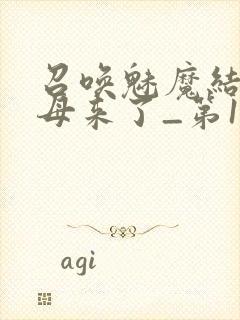 召唤魅魔结
母来了_第1
agi